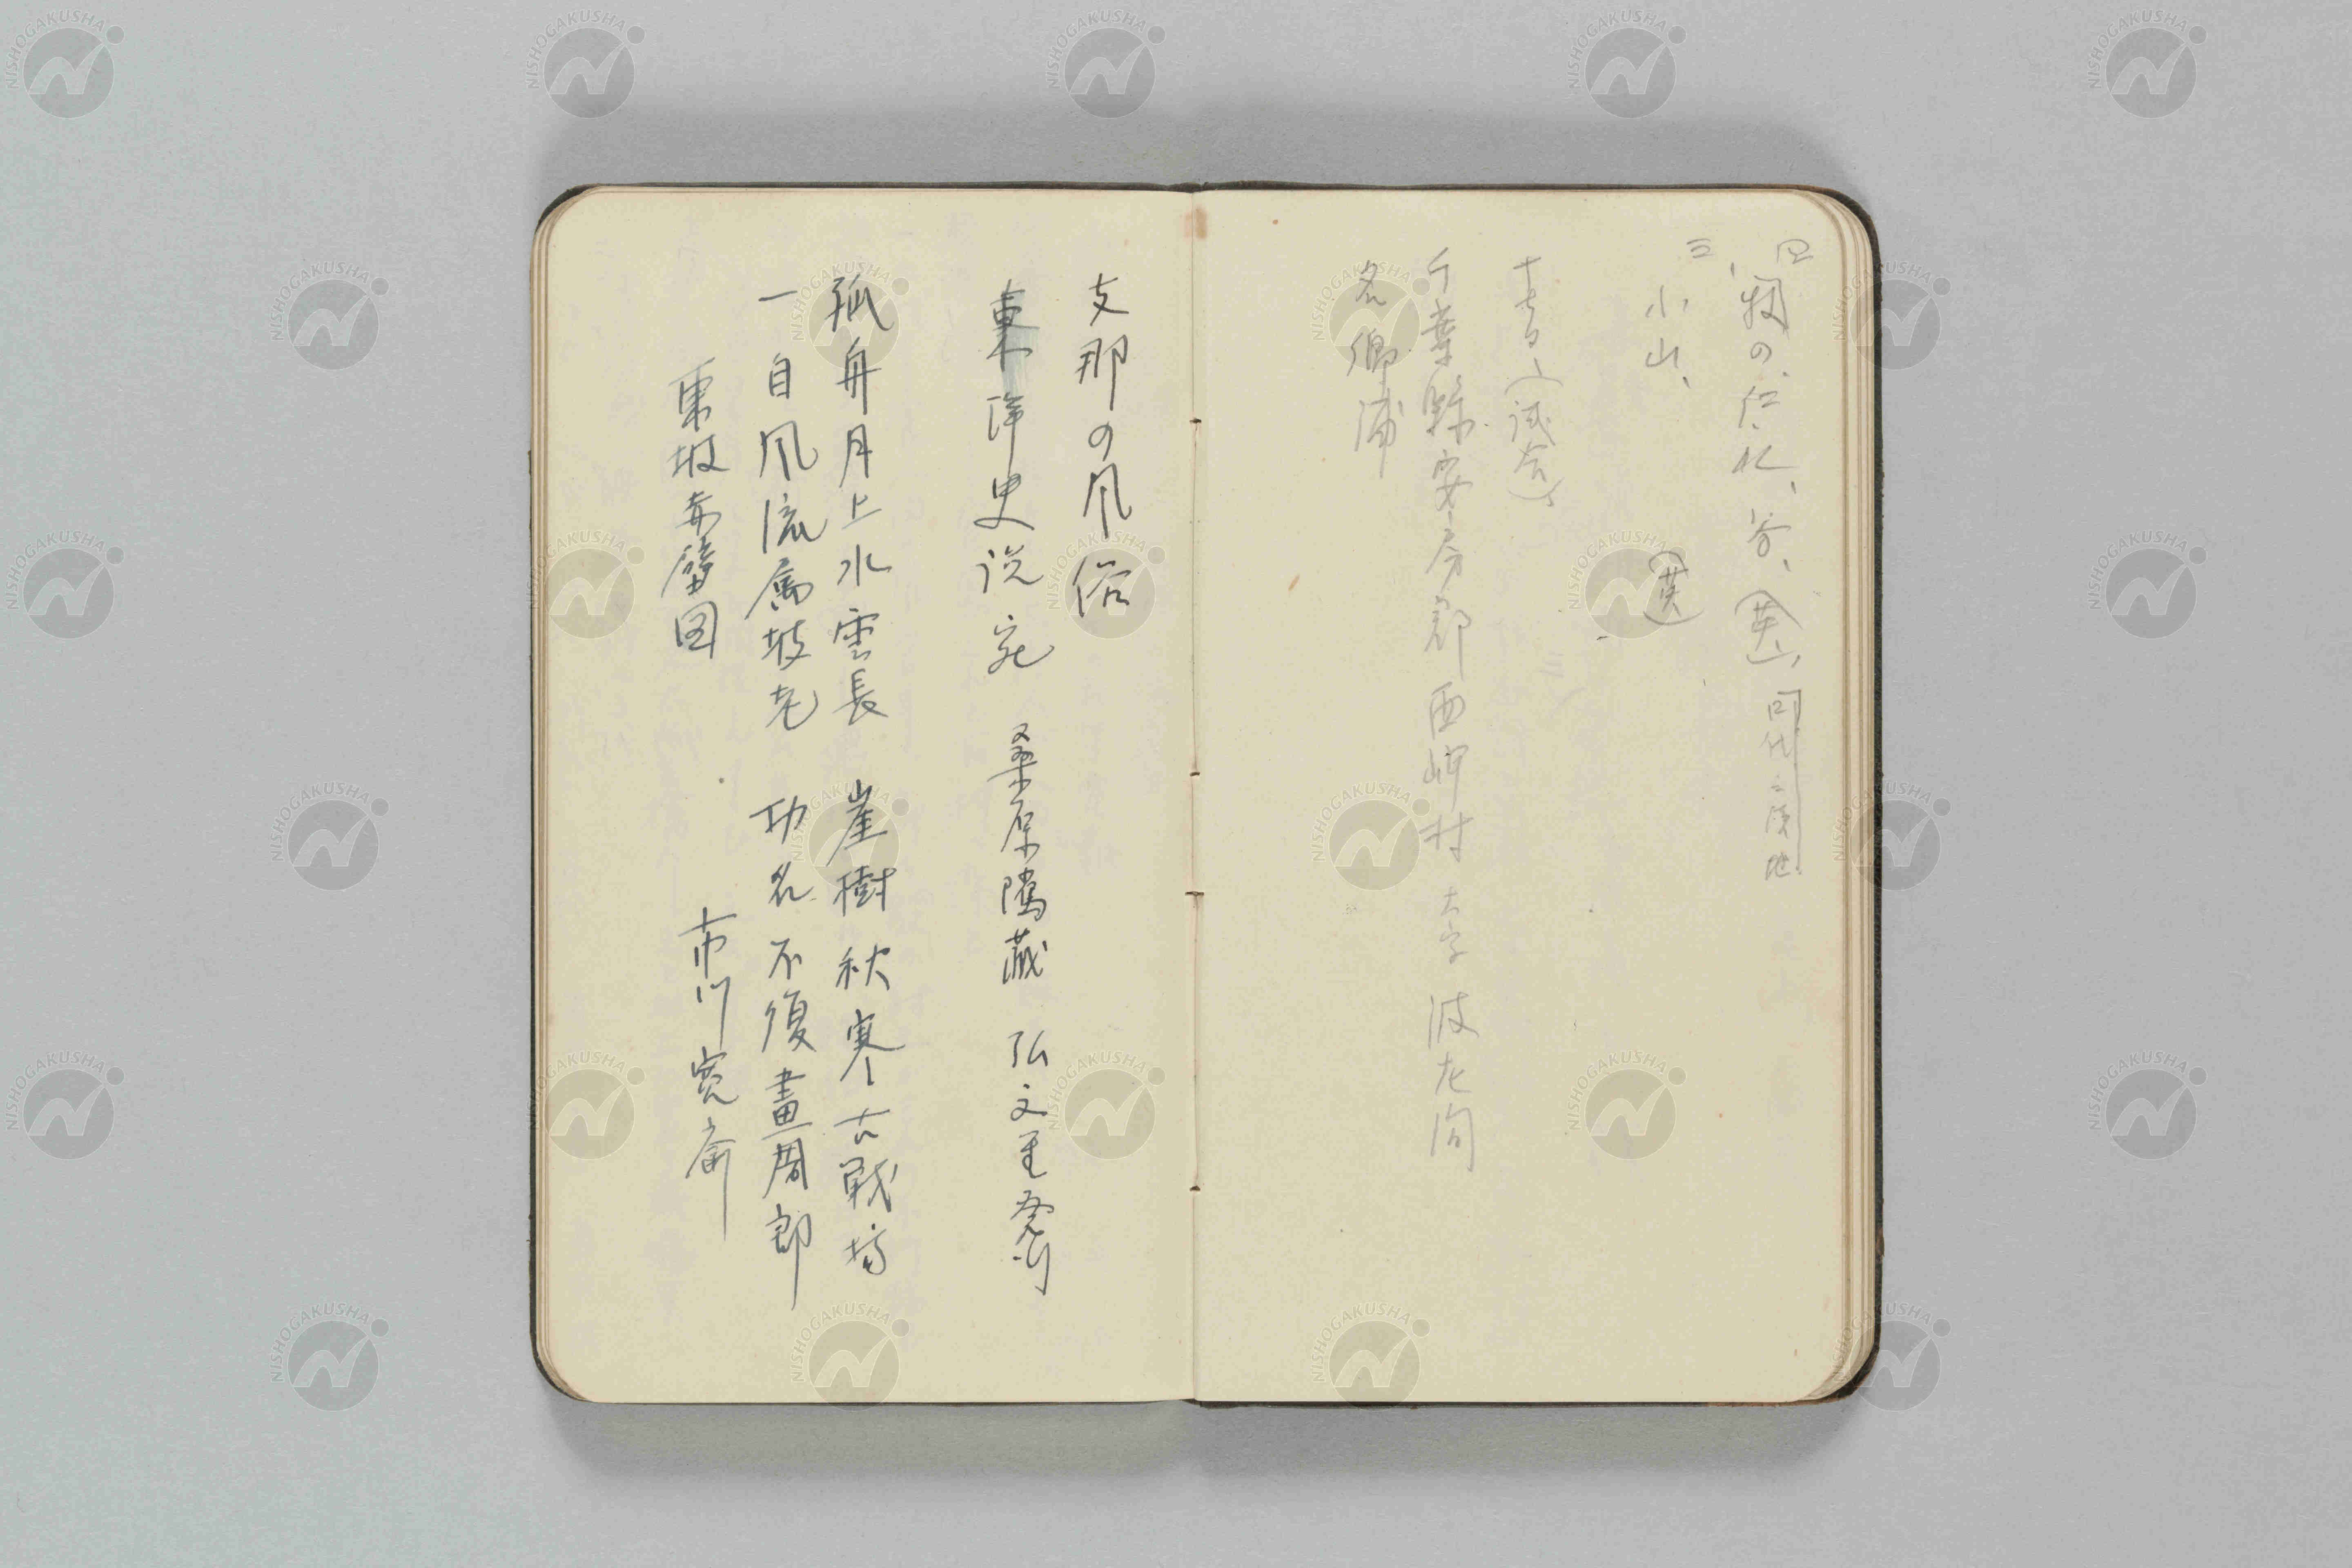 四
三、
小山、
(英)
十一日、(試合)、
千葉縣安房郡西岬村大字波左間
名郷浦
支那の風俗
東洋史説苑 桑原隲蔵 弘文堂発行
孤舟月上水雲長 崖樹秋寒古戦場
一自風流属坡老 功名不復畫周郎
東坡赤壁図 市川寛斎
NISHOGAKUSHA